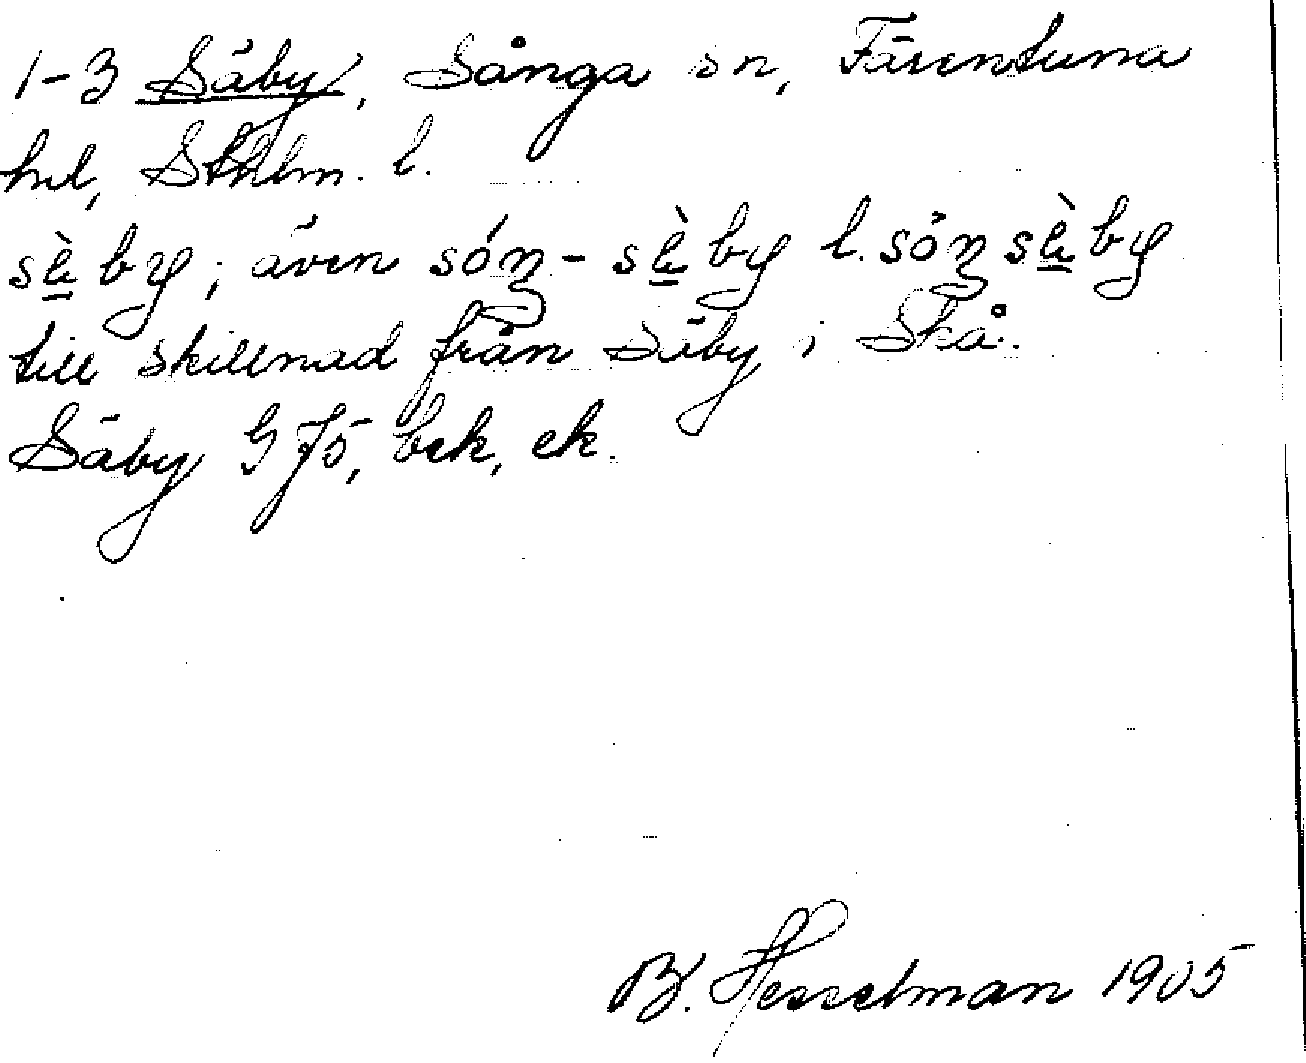 1-3 Säby, Sånga sn, Färentuna
hd, Sthlm. l.
sɛ̀by; även sóŋ-sɛ̀by l. sóŋsɛ̀by
till skillnad från Säby i Skå.
Säby GJ5, bek, ek.
B. Hesselman 1905